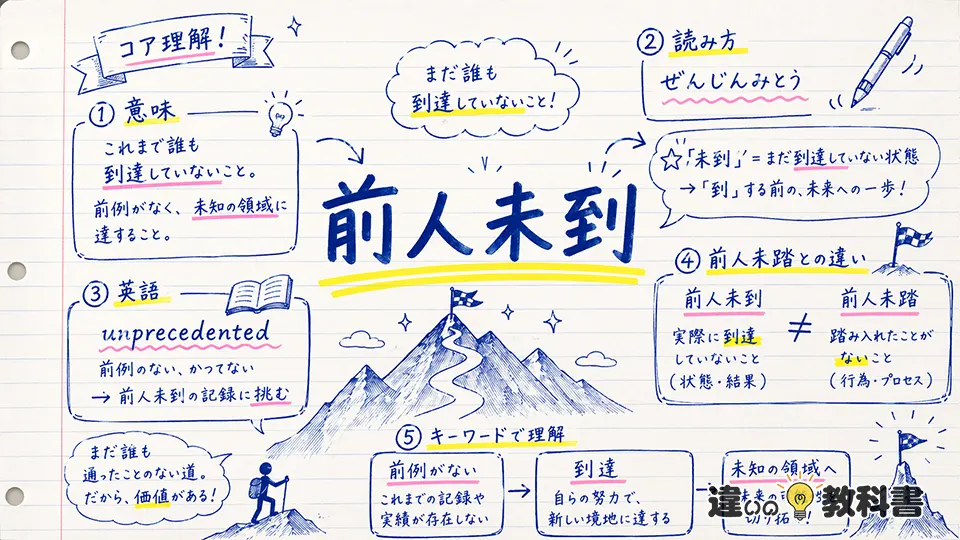 コア理解!
① 意味
これまで誰も
到達していないこと。
前例がなく、未知の領域に
達すること。
まだ誰も
到達していないこと!
② 読み方
ぜんじんみとう
☆「未到」=まだ到達していない状態
→「到」する前の、未来への一歩!
前人未到
③ 英語
unprecedented
前例のない、かつてない
→ 前人未到の記録に挑む
④ 前人未踏との違い
前人未到
実際に到達
していないこと
(状態・結果)
≠
前人未踏
踏み入れたことが
ないこと
(行為・プロセス)
まだ誰も
通ったことのない道。
だから、価値がある!
⑤ キーワードで理解
前例がない
これまでの記録や
実績が存在しない
→
到達
自らの努力で、
新しい境地に達する
未知の領域へ
未来の可
切り拓
違いの教科書